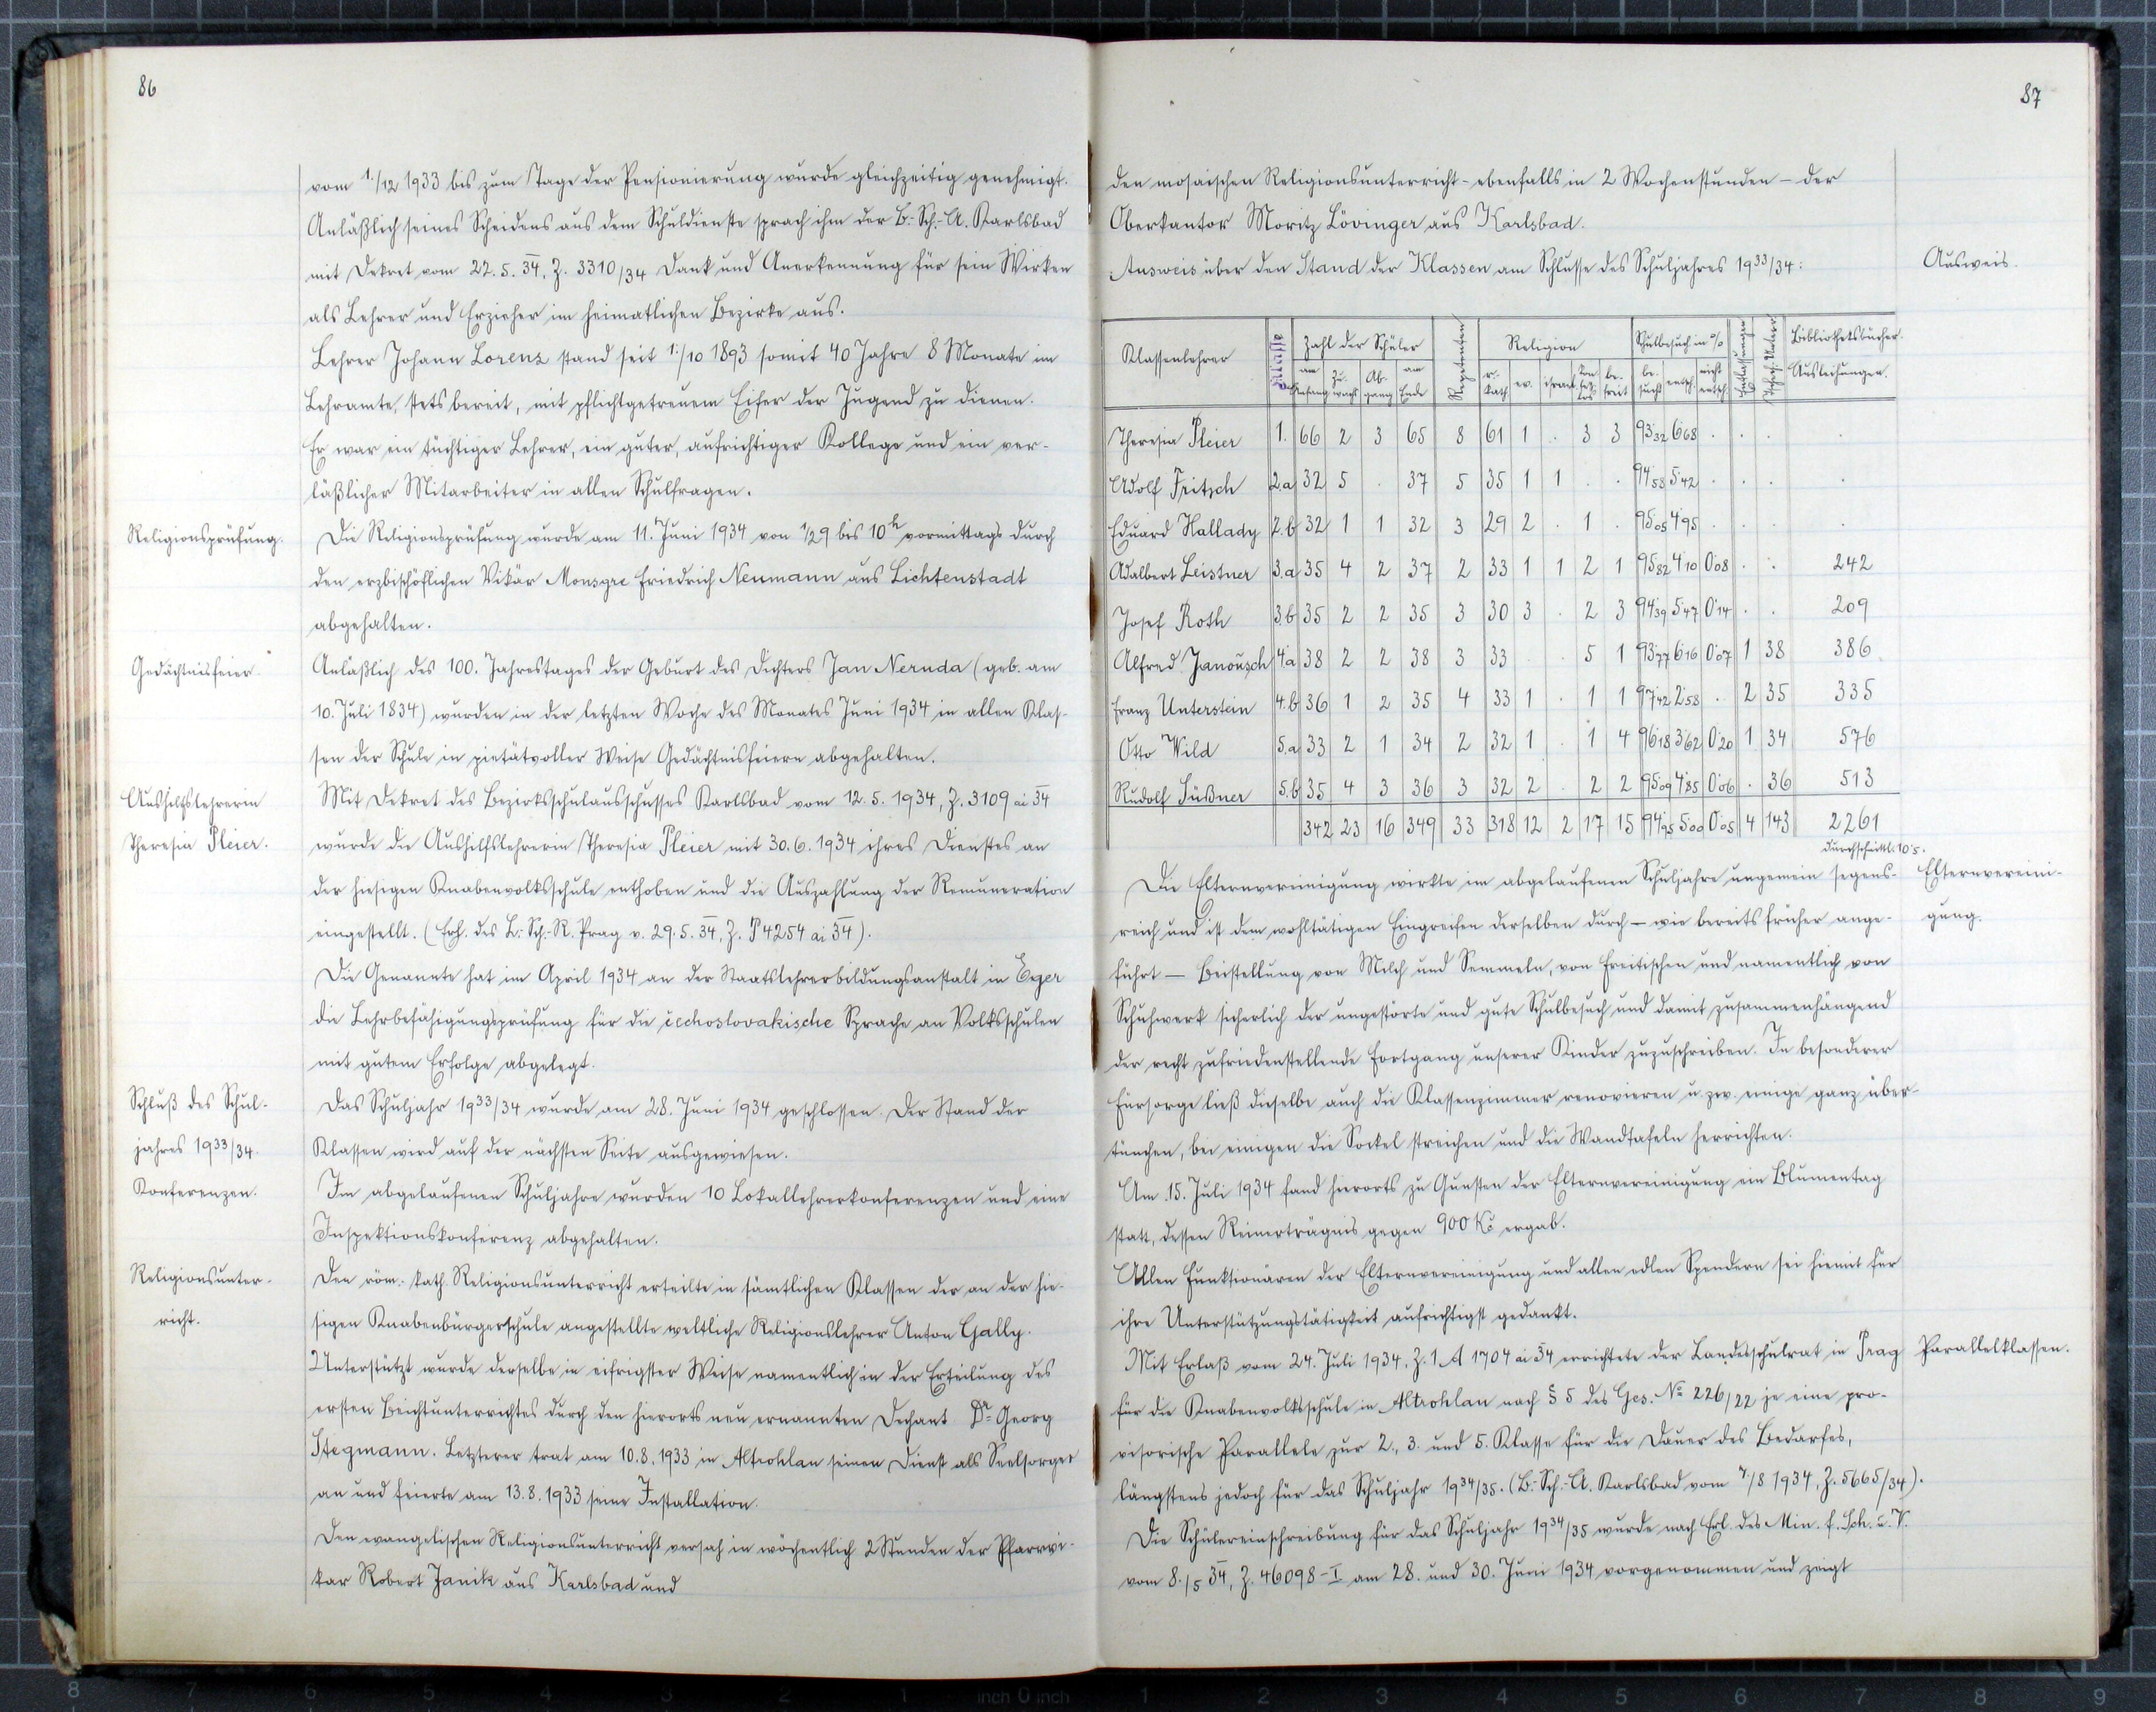 86
vom 1./12 1933 bis zum Tage der Pensionierung wurde gleichzeitig genehmigt.
Anläßlich seines Scheidens aus dem Schuldienste sprach ihm der B.-Sch.-A. Karlsbad
mit Dekret vom 22. 5. 34, Z. 3310/34 Dank und Anerkennung für sein Wirken
als Lehrer und Erzieher im heimatlichen Bezirke aus.
Lehrer Johann Lorenz stand seit 1./10 1893 somit 40 Jahre 8 Monate im
Lehramte, stets bereit, mit pflichtgetreuem Eifer der Jugend zu dienen.
Er war ein tüchtiger Lehrer, ein guter, aufrichtiger Kollege und ein ver-
läßlicher Mitarbeiter in allen Schulfragen.
Religionsprüfung.
Die Religionsprüfung wurde am 11. Juni 1934 von 1/29 bis 10h vormittags durch
den erzbischöflichen Vikär Monsgre Friedrich Neumann aus Lichtenstadt
abgehalten.
Gedächtnisfeier.
Anläßlich des 100. Jahrestages der Geburt des Dichters Jan Neruda (geb. am
10. Juli 1834) wurden in der letzten Woche des Monates Juni 1934 in allen Klas-
sen der Schule in pietätvoller Weise Gedächtnisfeiern abgehalten.
Aushilfslehrerin
Theresia Pleier.
Mit Dekret des Bezirksschulausschusses Karlsbad vom 12. 5. 1934, Z. 3109 ai 34
wurde die Aushilfslehrerin Theresia Pleier mit 30. 6. 1934 ihres Dienstes an
der hiesigen Knabenvolksschule enthoben und die Auszahlung der Remuneration
eingestellt. (Erl. des L.-Sch.-R. Prag v. 29. 5. 34, Z. P 4254 ai 34).
Die Genannte hat im April 1934 an der Staatslehrerbildungsanstalt in Eger
die Lehrbefähigungsprüfung für die čechoslovakische Sprache an Volksschulen
mit gutem Erfolge abgelegt.
Schluß des Schul-
jahres 1933/34.
Das Schuljahr 1933/34 wurde am 28. Juni 1934 geschlossen. Der Stand der
Klassen wird auf der nächsten Seite ausgewiesen.
Konferenzen.
Im abgelaufenen Schuljahre wurden 10 Lokallehrerkonferenzen und eine
Inspektionskonferenz abgehalten.
Religionsunter-
richt.
Den röm.-kath. Religionsunterricht erteilte in sämtlichen Klassen der an der hie-
sigen Knabenbürgerschule angestellte weltliche Religionslehrer Anton Gally.
Unterstützt wurde derselbe in eifrigster Weise namentlich in der Erteilung des
ersten Beichtunterrichtes durch den hierorts neu ernannten Dechant Dr Georg
Stegmann. Letzterer trat am 10. 8. 1933 in Altrohlau seinen Dienst als Seelsorger
an und feierte am 13. 8. 1933 seine Installation.
Den evangelischen Religionsunterricht versah in wöchentlich 2 Stunden der Pfarrvi-
kar Robert Janik aus Karlsbad und
87
den mosaischen Religionsunterricht - ebenfalls in 2 Wochenstunden - der
Oberkantor Moritz Lövinger aus Karlsbad.
Ausweis.
Ausweis über den Stand der Klassen am Schlusse des Schuljahres 1933/34:
Klassenlehrer Klasse Zahl der Schüler Repetenten Religion Schulbesuch in % Bibliotheksbücher.
am Anfang Zu-wachs Ab-gang am Ende r.-kath. ev. israel. konf.-los be-freit be-sucht entsch. nicht entsch. Ausleihungen.
Theresia Pleier 1. 66 2 3 65 8 61 1 . 3 3 93'32 6'68 . . . .
Adolf Fritsch 2.a 32 5 . 37 5 35 1 1 . . 94'58 5'42 . . . .
Eduard Hallady 2.b 32 1 1 32 3 29 2 . 1 . 95'05 4'95 . . . .
Adalbert Leistner 3.a 35 4 2 37 2 33 1 1 2 1 95'82 4'10 0'08 . . 242
Josef Roth 3.b 35 2 2 35 3 30 3 . 2 3 94'39 5'47 0'14 . . 209
Alfred Janousch 4.a 38 2 2 38 3 33 . . 5 1 93'77 6'16 0'07 1 38 386
Franz Unterstein 4.b 36 1 2 35 4 33 1 . 1 1 97'42 2'58 . 2 35 335
Otto Wild 5.a 33 2 1 34 2 32 1 . 1 4 96'18 3'62 0'20 1 34 576
Rudolf Süßner 5.b 35 4 3 36 3 32 2 . 2 2 95'09 4'85 0'06 . 36 513
342 23 16 349 33 318 12 2 17 15 94'95 5'00 0'05 4 143 2261
durchschnittl. 10'5.
Elternvereini-
gung.
Die Elternvereinigung wirkte im abgelaufenen Schuljahre ungemein segens-
reich und ist dem wohltätigen Eingreifen derselben durch - wie bereits früher ange-
führt - Beistellung von Milch und Semmeln, von Freitischen und namentlich von
Schuhwerk sicherlich der ungestörte und gute Schulbesuch und damit zusammenhängend
der recht zufriedenstellende Fortgang unserer Kinder zuzuschreiben. In besonderer
Fürsorge ließ dieselbe auch die Klassenzimmer renovieren u. zw. einige ganz über-
tünchen, bei einigen die Sockel streichen und die Wandtafeln herrichten.
Am 15. Juli 1934 fand hierorts zu Gunsten der Elternvereinigung ein Blumentag
statt, dessen Reinerträgnis gegen 900 Kč ergab.
Allen Funktionären der Elternvereinigung und allen edlen Spendern sei hiemit für
ihre Unterstützungstätigkeit aufrichtigst gedankt.
Parallelklassen.
Mit Erlaß vom 24. Juli 1934, Z. 1 A 1704 ai 34 errichtete der Landesschulrat in Prag
für die Knabenvolksschule in Altrohlau nach § 5 des Ges. No 226/22 je eine pro-
visorische Parallele zur 2., 3. und 5. Klasse für die Dauer des Bedarfes,
längstens jedoch für das Schuljahr 1934/35. (B.-Sch.-A. Karlsbad vom 7./8 1934, Z. 5665/34).
Die Schülereinschreibung für das Schuljahr 1934/35 wurde nach Erl. des Min. f. Sch. u. V.
vom 8./5 34, Z. 46098-I am 28. und 30. Juni 1934 vorgenommen und zeigt
8 7 6 5 4 3 2 1 inch 0 inch 1 2 3 4 5 6 7 8 9